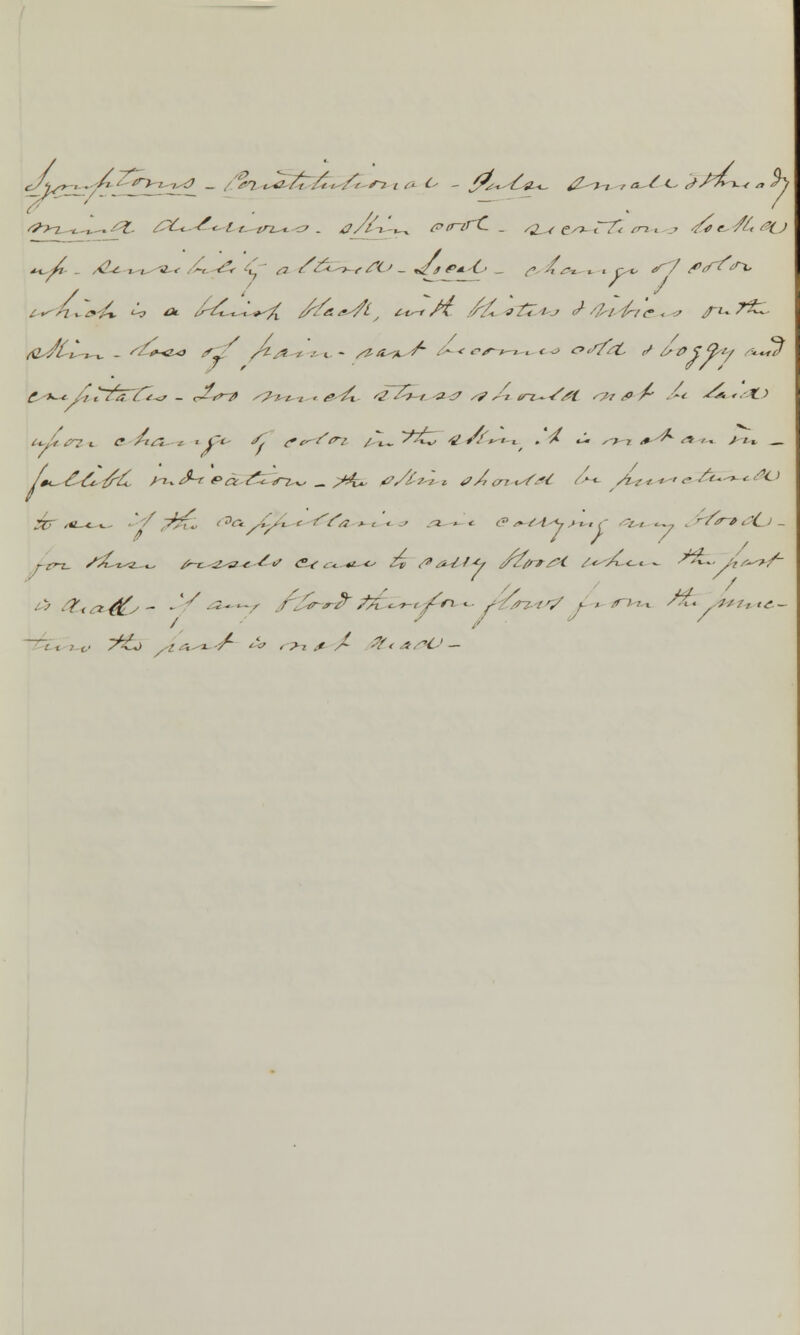 Symptoms – Constitutional – Pulse small & thready
mind delirious. Skin cool – secretions locked
up – Sensibility altered – Local – change of color
which is a bluish black, with blisters & vibices on the
Skin – loss of pain – part becomes cold & boggy and
crepitates – Too much stress should not be laid
upon change of color in the skin, it is not an in –
fallible indication – the skin should be punctured
to see if the capillaries are carrying any blood –
for these vessels cease to carry blood when the part
is dead – if any blood therefore flows from the punc –
tures the part is not dead –